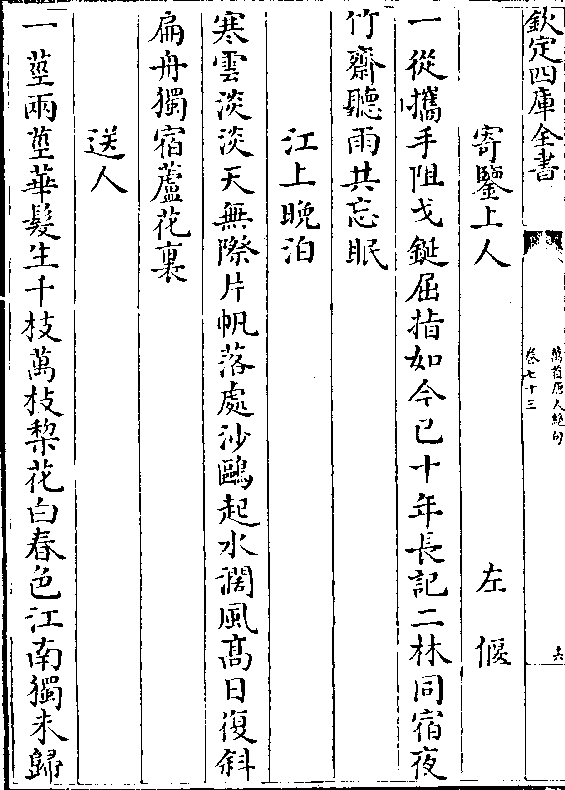 欽定四庫全書
萬首唐人絕句
卷七十三
六
寄鑒上人　左偃
一從攜手阻戈鋋屈指如今已十年長記二林同宿夜
竹齋聽雨共忘眠
江上晚泊
寒雲淡淡天無際片帆落處沙鷗起水濶風髙日復斜
扁舟獨宿蘆花裏
送人
一莖兩莖華髮生千枝萬枝梨花白春色江南獨未歸